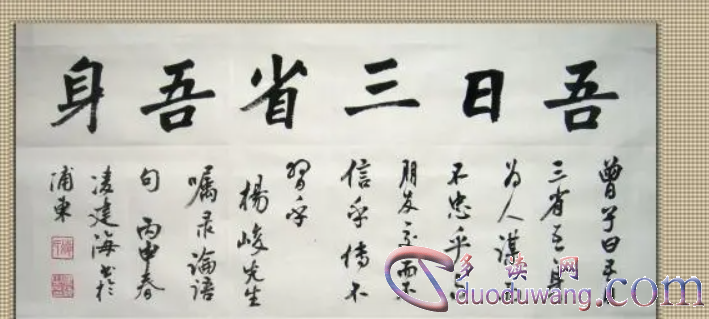 吾日三省吾身
曾子曰吾日
三省吾身
为人谋而
不忠乎与
朋友交而不
信乎传不
習乎
楊峻先生
嘱录論语
句 丙申春
凌建海书於
浦東
多读网
duoduwang.com